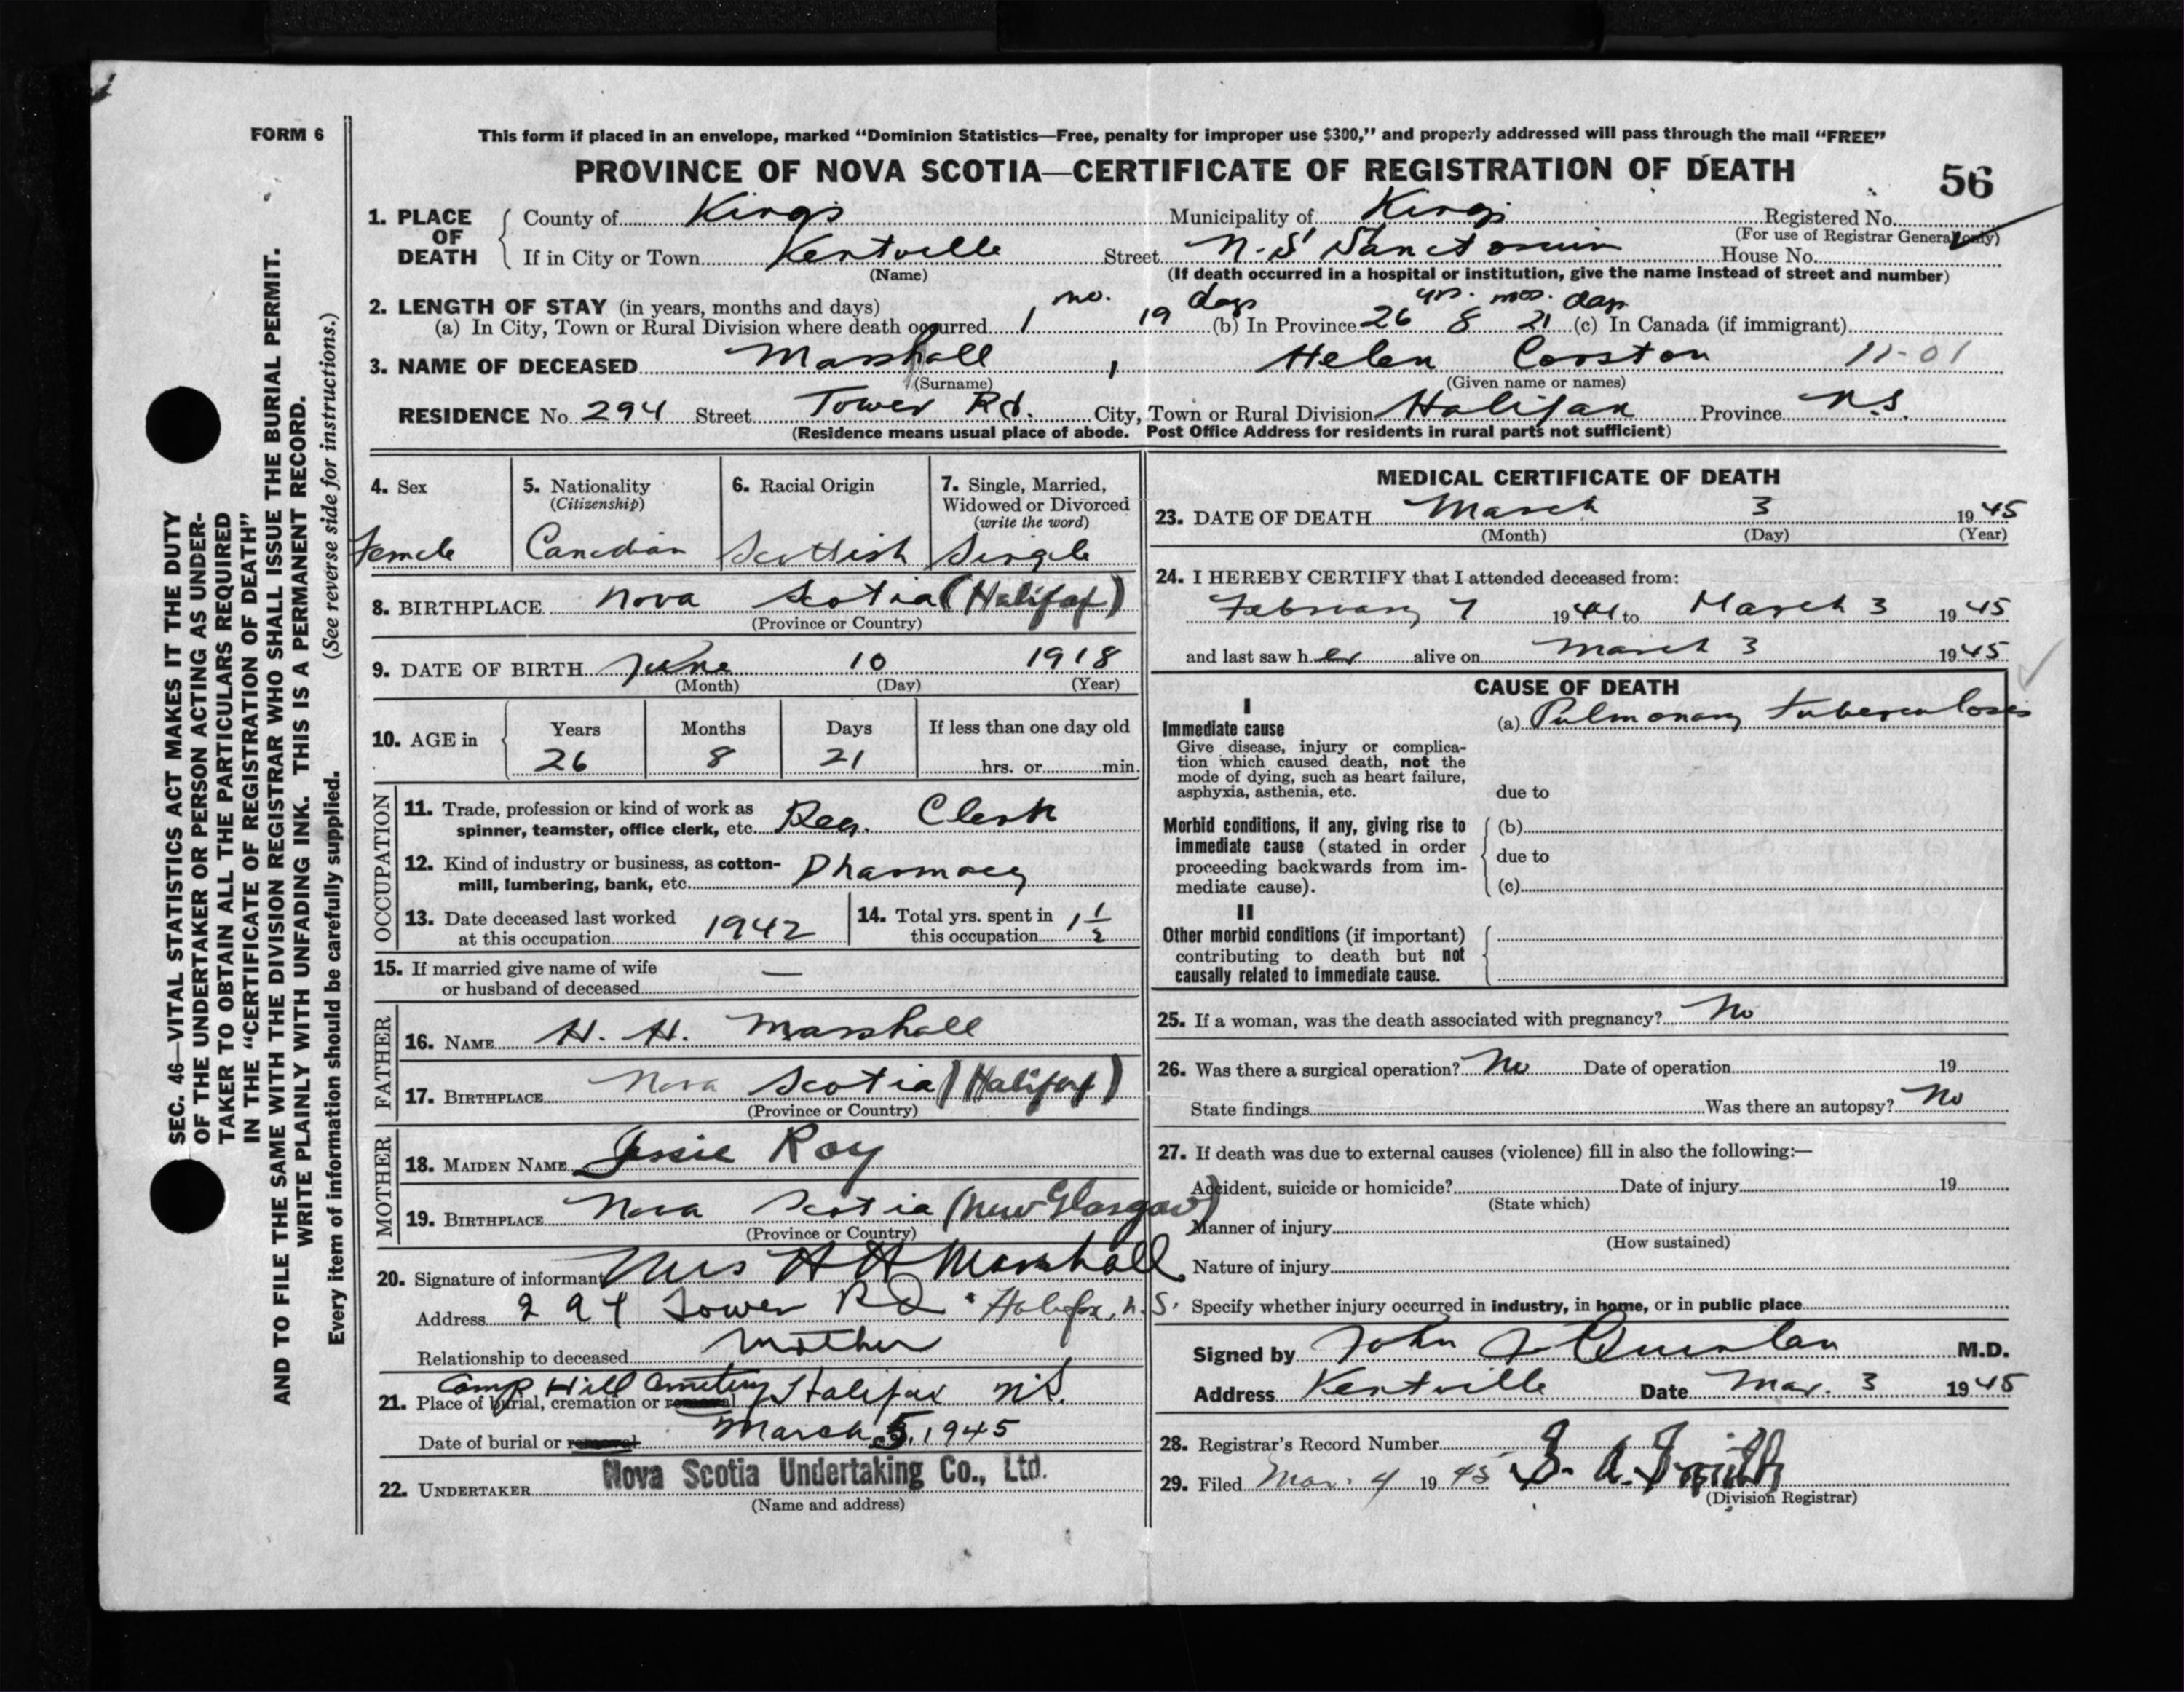 FORM 6
This form if placed in an envelope, marked “Dominion Statistics—Free, penalty for improper use $300,” and properly addressed will pass through the mail “FREE”
PROVINCE OF NOVA SCOTIA—CERTIFICATE OF REGISTRATION OF DEATH
56
1. PLACE OF DEATH
County of Kings Municipality of Kings Registered No.
(For use of Registrar General only)
If in City or Town Kentville Street N.S. Sanctorium House No.
(Name) (If death occurred in a hospital or institution, give the name instead of street and number)
2. LENGTH OF STAY (in years, months and days)
(a) In City, Town or Rural Division where death occurred 1 mo. 19 days (b) In Province 26 yrs. 8 mos. 21 days (c) In Canada (if immigrant)
3. NAME OF DECEASED Marshall , Helen Corston 11-01
(Surname) (Given name or names)
RESIDENCE No. 294 Street Tower Rd. City, Town or Rural Division Halifax Province N.S.
(Residence means usual place of abode. Post Office Address for residents in rural parts not sufficient)
4. Sex
Female
5. Nationality
(Citizenship)
Canadian
6. Racial Origin
Scottish
7. Single, Married,
Widowed or Divorced
(write the word)
Single
8. BIRTHPLACE Nova Scotia (Halifax)
(Province or Country)
9. DATE OF BIRTH June 10 1918
(Month) (Day) (Year)
10. AGE in
Years Months Days If less than one day old
26 8 21 hrs. or min.
OCCUPATION
11. Trade, profession or kind of work as
spinner, teamster, office clerk, etc. Rec. Clerk
12. Kind of industry or business, as cotton-
mill, lumbering, bank, etc. Pharmacy
13. Date deceased last worked
at this occupation 1942
14. Total yrs. spent in
this occupation 1 1/2
15. If married give name of wife
or husband of deceased —
FATHER
16. NAME H. H. Marshall
17. BIRTHPLACE Nova Scotia (Halifax)
(Province or Country)
MOTHER
18. MAIDEN NAME Jessie Roy
19. BIRTHPLACE Nova Scotia (New Glasgow)
(Province or Country)
20. Signature of informant Mrs H H Marshall
Address 294 Tower Rd. Halifax, N.S.
Relationship to deceased Mother
21. Place of burial, cremation or removal Camp Hill Cemetery Halifax N.S.
Date of burial or removal March 5, 1945
22. UNDERTAKER Nova Scotia Undertaking Co., Ltd.
(Name and address)
MEDICAL CERTIFICATE OF DEATH
23. DATE OF DEATH March 3 1945
(Month) (Day) (Year)
24. I HEREBY CERTIFY that I attended deceased from:
February 7 1944 to March 3 1945
and last saw her alive on March 3 1945
CAUSE OF DEATH
I
Immediate cause
Give disease, injury or complica-
tion which caused death, not the
mode of dying, such as heart failure,
asphyxia, asthenia, etc.
(a) Pulmonary tuberculosis
due to
Morbid conditions, if any, giving rise to
immediate cause (stated in order
proceeding backwards from im-
mediate cause).
(b)
due to
(c)
II
Other morbid conditions (if important)
contributing to death but not
causally related to immediate cause.
25. If a woman, was the death associated with pregnancy? No
26. Was there a surgical operation? No Date of operation 19
State findings Was there an autopsy? No
27. If death was due to external causes (violence) fill in also the following:—
Accident, suicide or homicide? Date of injury 19
(State which)
Manner of injury
(How sustained)
Nature of injury
Specify whether injury occurred in industry, in home, or in public place
Signed by John J Quinlan M.D.
Address Kentville Date Mar. 3 1945
28. Registrar’s Record Number
29. Filed Mar. 4 1945
(Division Registrar)
SEC. 46—VITAL STATISTICS ACT MAKES IT THE DUTY
OF THE UNDERTAKER OR PERSON ACTING AS UNDER-
TAKER TO OBTAIN ALL THE PARTICULARS REQUIRED
IN THE “CERTIFICATE OF REGISTRATION OF DEATH”
AND TO FILE THE SAME WITH THE DIVISION REGISTRAR WHO SHALL ISSUE THE BURIAL PERMIT.
WRITE PLAINLY WITH UNFADING INK. THIS IS A PERMANENT RECORD.
Every item of information should be carefully supplied. (See reverse side for instructions.)